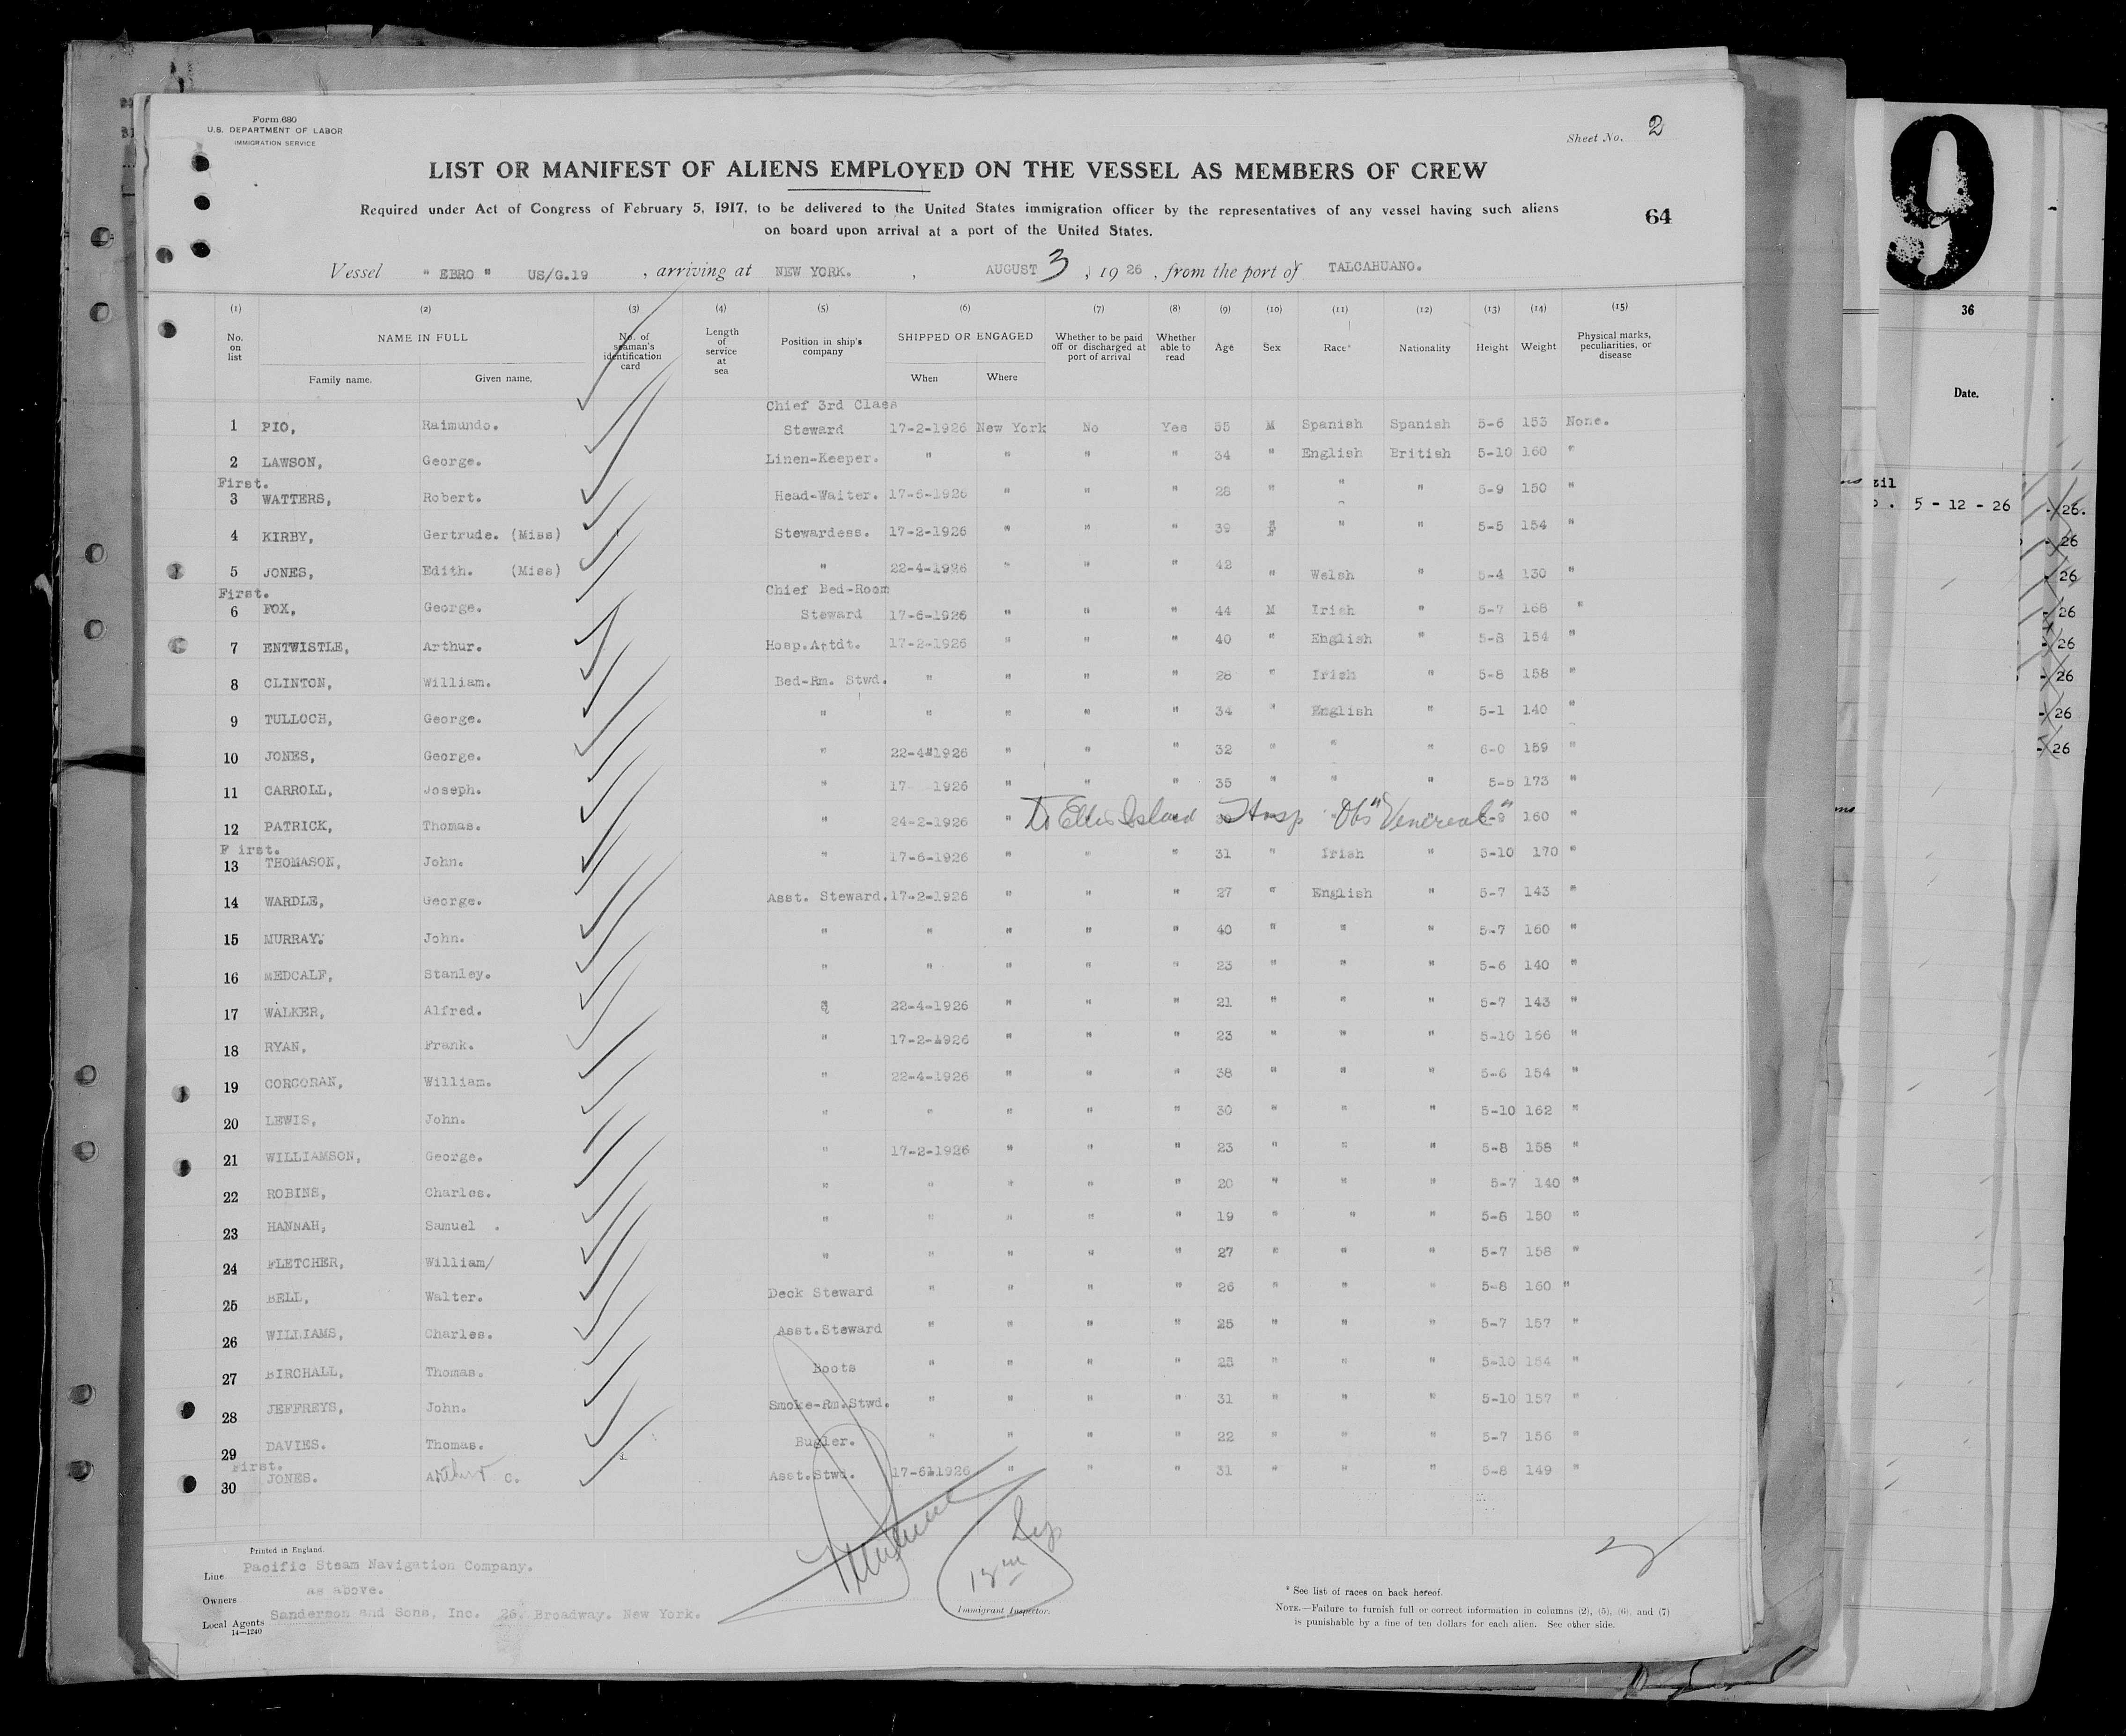 Form 680
U.S. DEPARTMENT OF LABOR
IMMIGRATION SERVICE
Sheet No. 2
LIST OR MANIFEST OF ALIENS EMPLOYED ON THE VESSEL AS MEMBERS OF CREW
Required under Act of Congress of February 5, 1917, to be delivered to the United States immigration officer by the representatives of any vessel having such aliens
on board upon arrival at a port of the United States.
64
Vessel " EBRO " US/G.19 , arriving at NEW YORK. , AUGUST 3 , 19 26 , from the port of TALCAHUANO.
(1) (2) (3) (4) (5) (6) (7) (8) (9) (10) (11) (12) (13) (14) (15)
No. on list NAME IN FULL Family name. Given name. No. of seaman's identification card Length of service at sea Position in ship's company SHIPPED OR ENGAGED When Where Whether to be paid off or discharged at port of arrival Whether able to read Age Sex Race* Nationality Height Weight Physical marks, peculiarities, or disease
1 PIO, Raimundo. Chief 3rd Class Steward 17-2-1926 New York No Yes 55 M Spanish Spanish 5-6 153 None.
2 LAWSON, George. Linen-Keeper. " " " " 34 " English British 5-10 160 "
First.
3 WATTERS, Robert. Head-Waiter. 17-6-1926 " " " 28 " " " 5-9 150 "
4 KIRBY, Gertrude. (Miss) Stewardess. 17-2-1926 " " " 39 F " " 5-5 154 "
5 JONES, Edith. (Miss) " 22-4-1926 " " " 42 " Welsh " 5-4 130 "
First.
6 FOX, George. Chief Bed-Room Steward 17-6-1926 " " " 44 M Irish " 5-7 168 "
7 ENTWISTLE, Arthur. Hosp.Attdt. 17-2-1926 " " " 40 " English " 5-8 154 "
8 CLINTON, William. Bed-Rm. Stwd. " " " " 28 " Irish " 5-8 158 "
9 TULLOCH, George. " " " " " 34 " English " 5-1 140 "
10 JONES, George. " 22-4-1926 " " " 32 " " " 6-0 159 "
11 CARROLL, Joseph. " 17 1926 " " " 35 " " " 5-5 173 "
12 PATRICK, Thomas. " 24-2-1926 " To Ellis Island Hosp Obs "Venereal" 5-9 160 "
F irst.
13 THOMASON, John. " 17-6-1926 " " " 31 " Irish " 5-10 170 "
14 WARDLE, George. Asst. Steward. 17-2-1926 " " " 27 " English " 5-7 143 "
15 MURRAY. John. " " " " " 40 " " " 5-7 160 "
16 MEDCALF, Stanley. " " " " " 23 " " " 5-6 140 "
17 WALKER, Alfred. " 22-4-1926 " " " 21 " " " 5-7 143 "
18 RYAN, Frank. " 17-2-1926 " " " 23 " " " 5-10 166 "
19 CORCORAN, William. " 22-4-1926 " " " 38 " " " 5-6 154 "
20 LEWIS, John. " " " " " 30 " " " 5-10 162 "
21 WILLIAMSON, George. " 17-2-1926 " " " 23 " " " 5-8 158 "
22 ROBINS, Charles. " " " " " 20 " " " 5-7 140 "
23 HANNAH, Samuel . " " " " " 19 " " " 5-6 150 "
24 FLETCHER, William/ " " " " " 27 " " " 5-7 158 "
25 BELL, Walter. Deck Steward " " " " 26 " " " 5-8 160 "
26 WILLIAMS, Charles. Asst.Steward " " " " 25 " " " 5-7 157 "
27 BIRCHALL, Thomas. Boots " " " " 23 " " " 5-10 154 "
28 JEFFREYS, John. Smoke-Rm.Stwd. " " " " 31 " " " 5-10 157 "
29 DAVIES. Thomas. Bugler. " " " " 22 " " " 5-7 156 "
First.
30 JONES. Arthur C. Asst.Stwd. 17-6-1926 " " " 31 " " " 5-8 149 "
Printed in England.
Line Pacific Steam Navigation Company.
Owners as above.
Local Agents Sanderson and Sons, Inc. 26, Broadway. New York.
14—1240
Immigrant Inspector.
* See list of races on back hereof.
NOTE.—Failure to furnish full or correct information in columns (2), (5), (6), and (7)
is punishable by a fine of ten dollars for each alien. See other side.
9
36
Date.
zil
5 - 12 - 26
26.
26
26
26
26
26
26
26